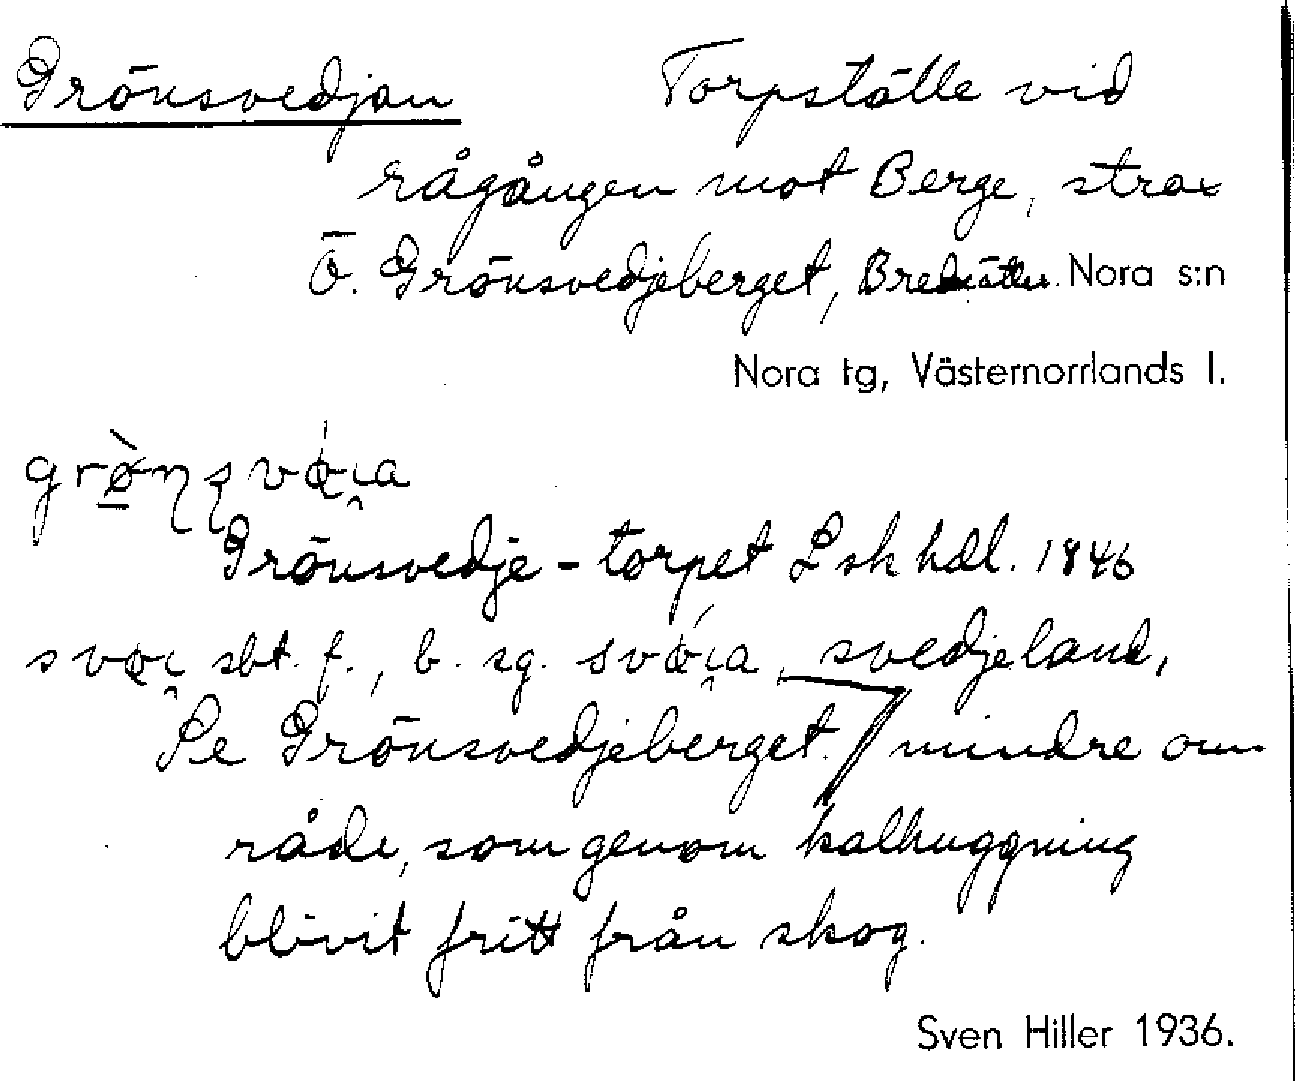 Grönsvedjan Torpställe vid
rågången mot Berge, strax
Ö. Grönsvedjeberget, Bredsätter. Nora s:n
Nora tg, Västernorrlands l.
Grönsvedje-torpet Lskhdl. 1846
sbt. f., b. sg. svedjeland,
Se Grönsvedjeberget. mindre om-
råde, som genom kalhuggning
blivit fritt från skog.
Sven Hiller 1936.